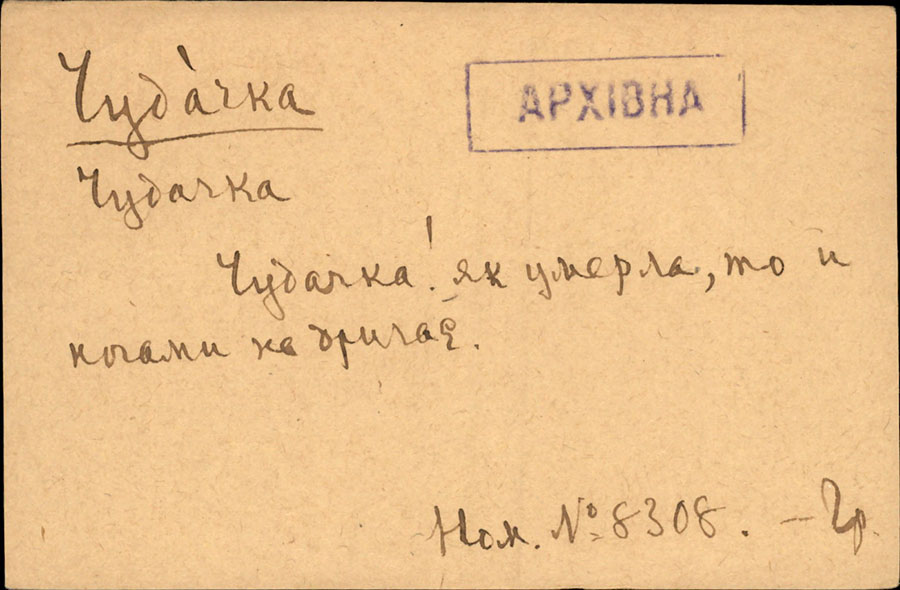 Чуда́чка
АРХІВНА
Чудачка
Чудачка! як умерла, то и
ногами не дригає.
Ном. № 8308. – Гр.